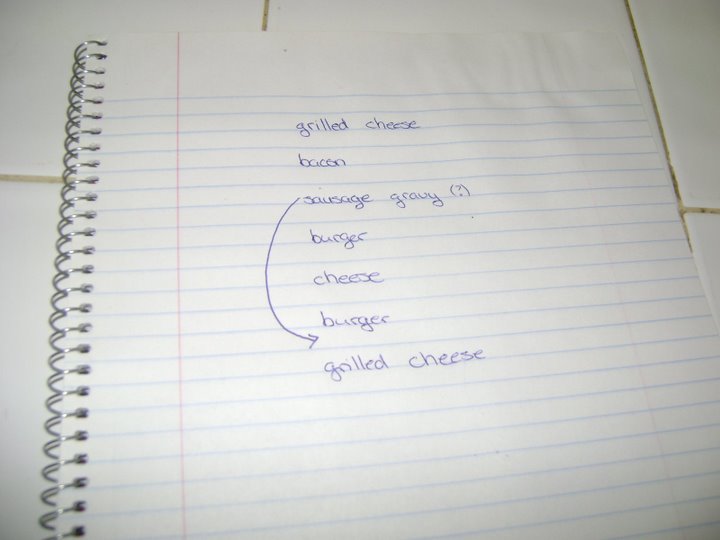 grilled cheese
bacon
sausage gravy (?)
burger
cheese
burger
grilled cheese